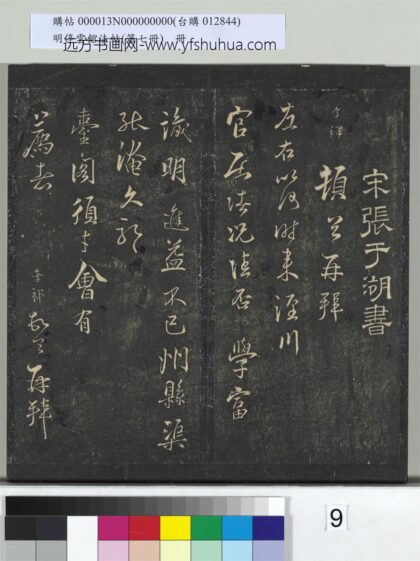 購帖 000013N000000000(台購 012844)
明停雲館法帖(第七冊) 冊
远方书画网-www.yfshuhua.com
宋張于湖書
孝祥
頓首再拜
左右以何時來涇川
官居情況佳否 學富
識明進益不已州縣渠
能淹久耶
臺閣須才會有
薦者
孝祥 頓首再拜
9